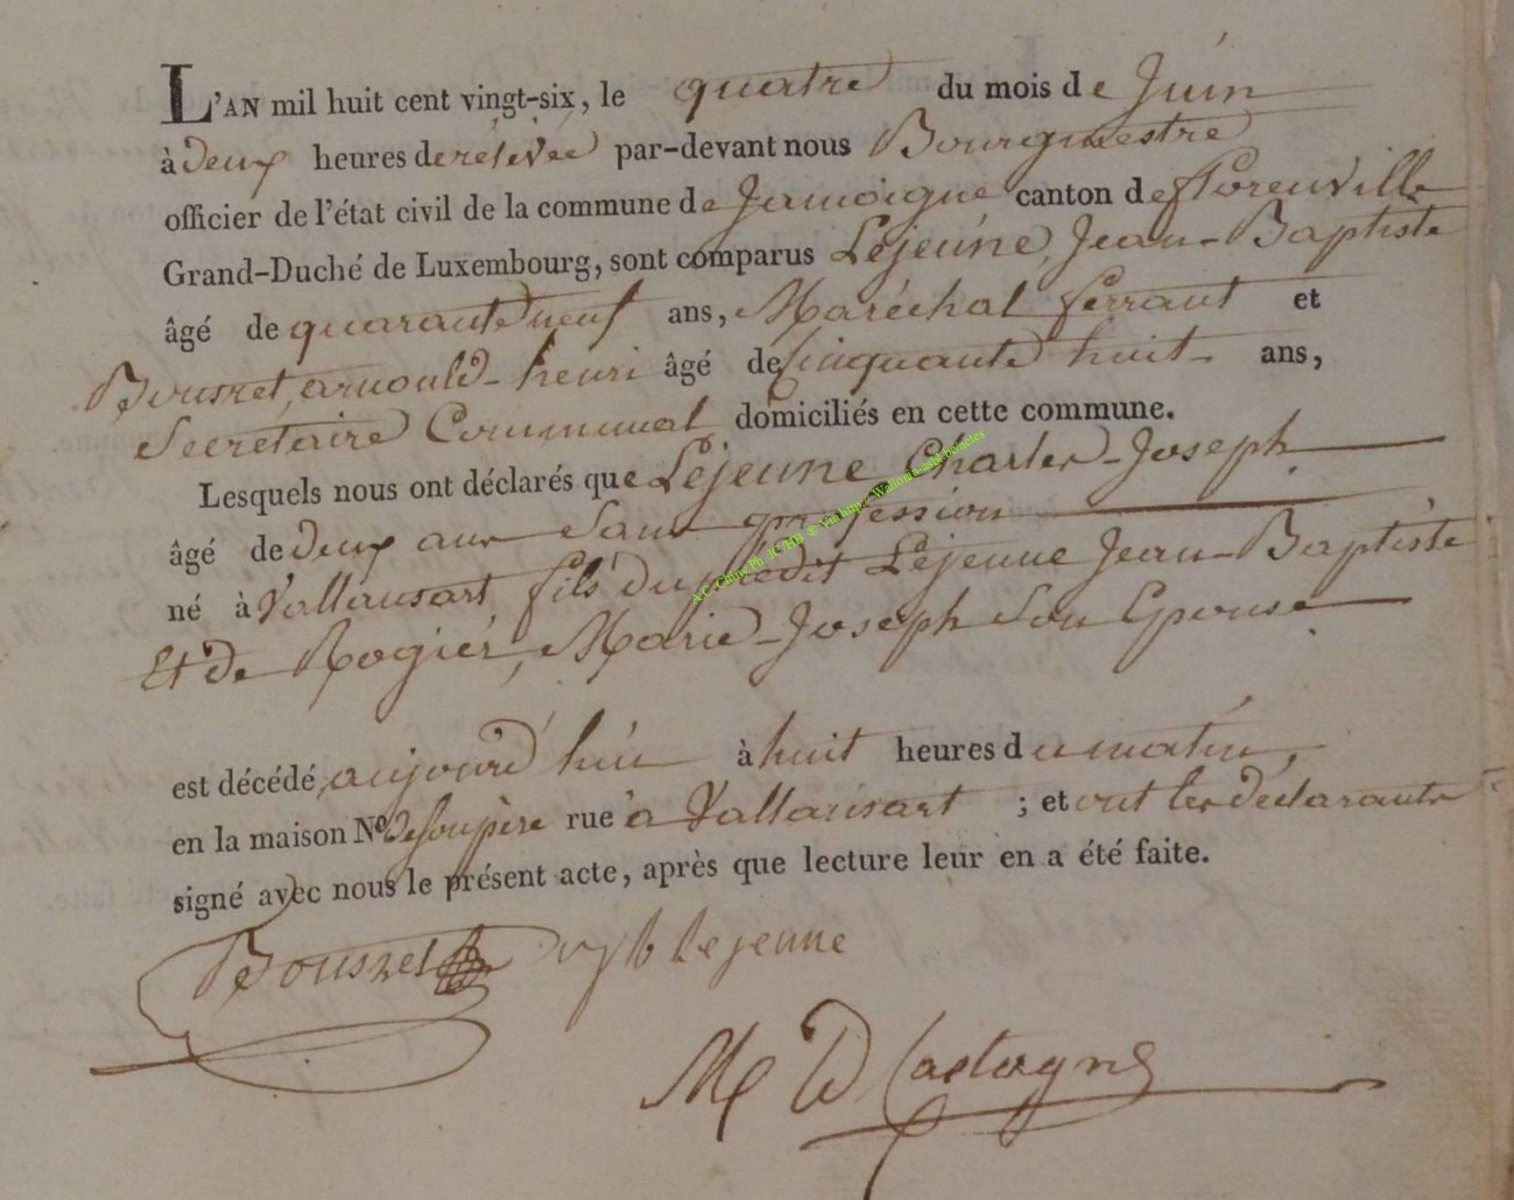 L'AN mil huit cent vingt-six, le quatre du mois de Juin
à deux heures de relevée par-devant nous Bourgmestre
officier de l'état civil de la commune de Jamoigne canton de florenville
Grand-Duché de Luxembourg, sont comparus Lejeúne, Jean-Baptiste
âgé de quarante neuf ans, Maréchal ferrant et
Bousret, arnould-henri âgé de Cinquante huit ans,
Secrétaire Communal domiciliés en cette commune.
Lesquels nous ont déclarés que Lejeune Charles-Joseph
âgé de deux ans Sans profession
né à Vallansart, fils du prédit Lejeune Jean-Baptiste
Et de Rogier, Marie-Joseph Son Epouse
est décédé aujourd'húi à huit heures du matin,
en la maison No. de Son père rue à Vallansart ; et ont les déclarants
signé avec nous le présent acte, après que lecture leur en a été faite.
Bousret jb lejeune
M D Castagne
A.C. Chiny Ph. JC HB ® Via http:/ Wallonia-asbl.be/actes